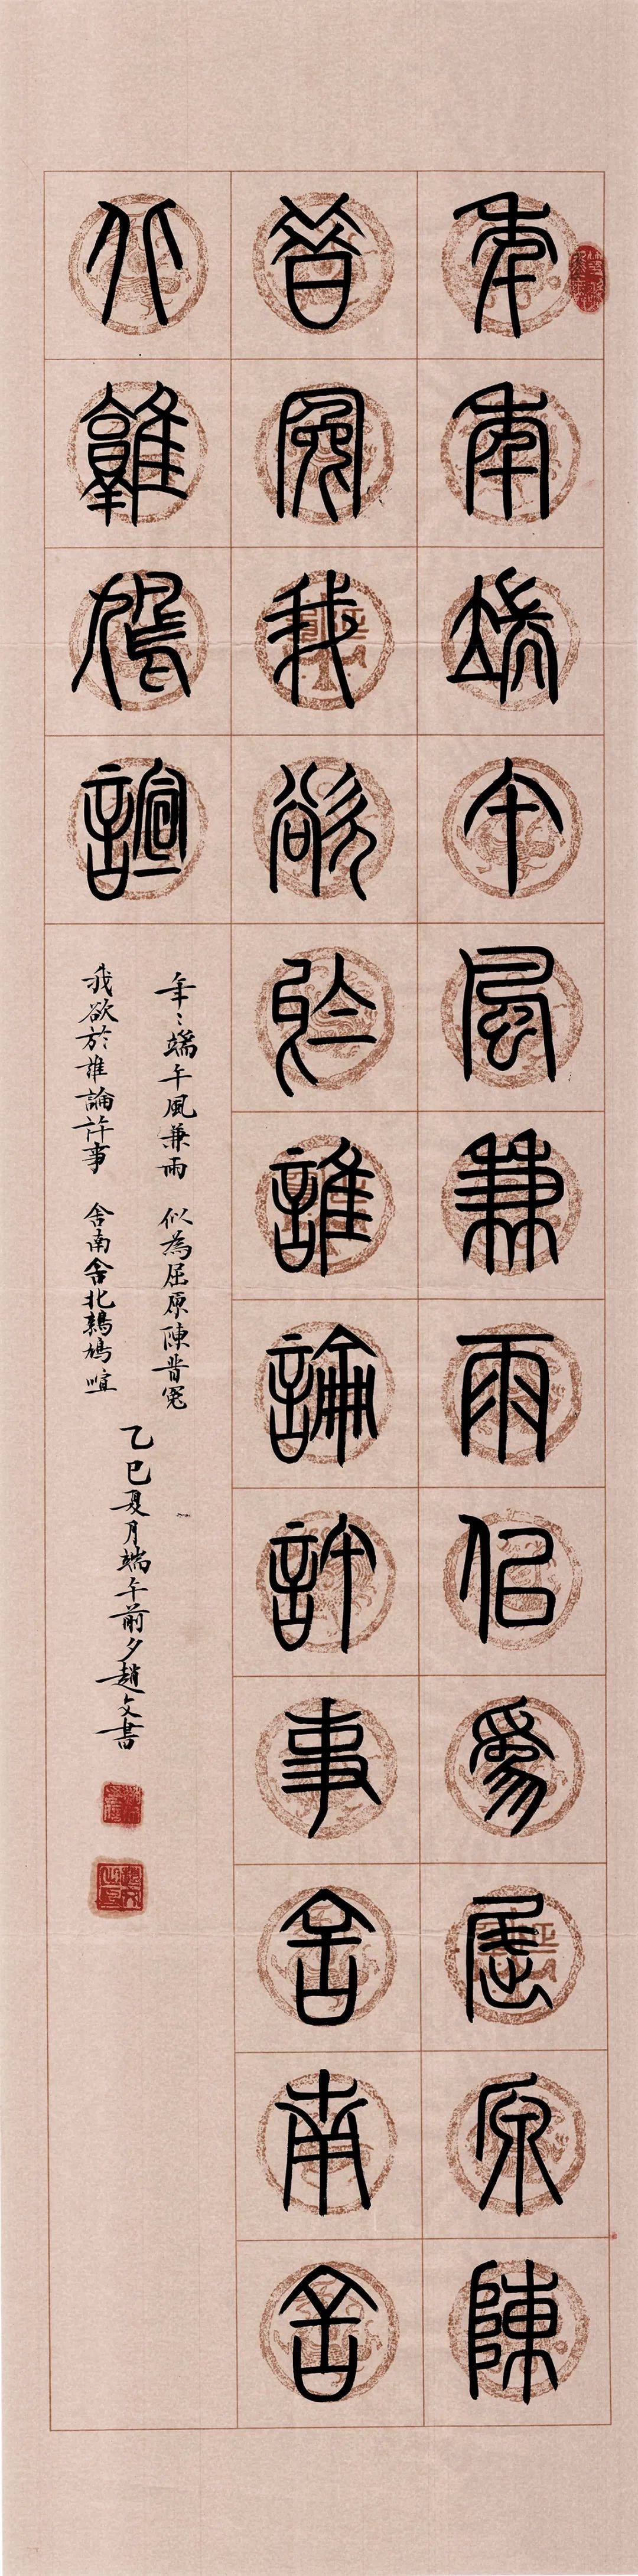 年年端午風兼雨似為屈原陳
昔冤我欲於誰論許事舍南舍
北鶉鳩喧
年〻端午風兼雨 似為屈原陳昔冤
我欲於誰論許事 舍南舍北鶉鳩喧
乙巳夏月端午前夕趙文書